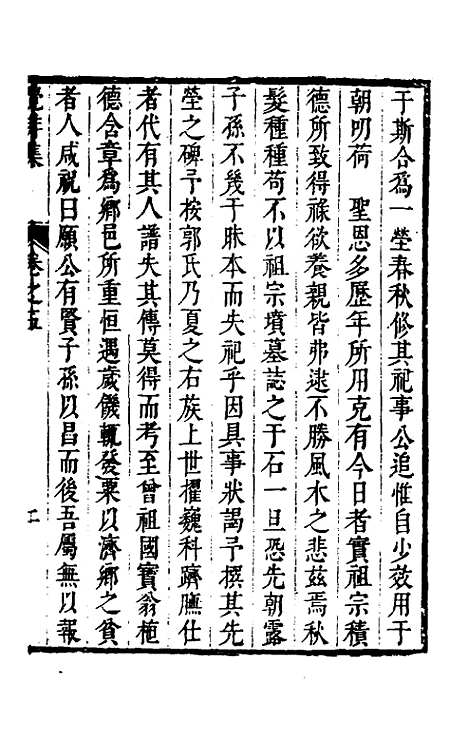 于斯合爲一塋春秋修其祀事公追惟自少效用于
朝叨荷　聖恩多歷年所用克有今日者實祖宗積
德所致得祿欲養親皆弗逮不勝風木之悲兹焉秋
髮種種苟不以祖宗墳墓誌之于石一旦恐先朝露
子孫不幾于昧本而失祀乎因具事狀謁予撰其先
塋之碑予按郭氏乃夏之右族上世擢巍科躋膴仕
者代有其人譜失其傳莫得而考至曾祖國寳翁
德含章爲鄉邑所重恒遇歲饑輒發粟以濟鄉之貧
者人咸祝曰願公有賢子孫以昌而後吾屬無以報
集
卷之五